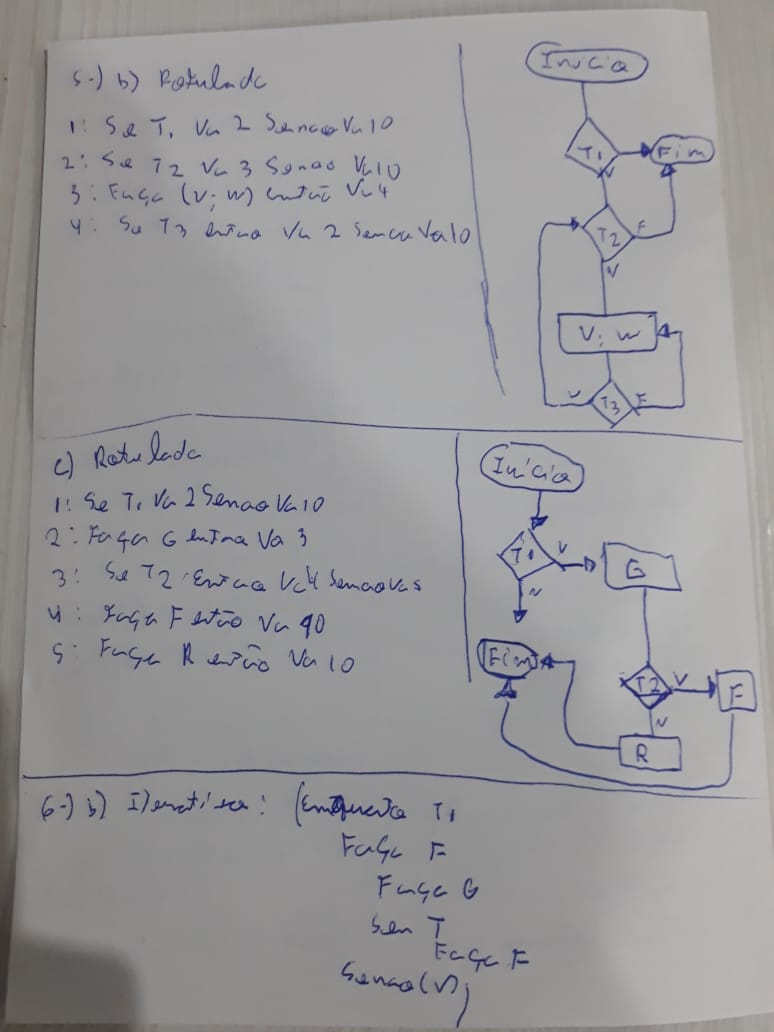 5-) b) Rotulada
1: Se T1 Va 2 Senao Va 10
2: Se T2 Va 3 Senao Va 10
3: Faça (V; W) então Va 4
4: Se T3 entao Va 2 Senao Va 10
Inicio
T1
Fim
V
T2
F
V
V; W
V
T3
F
c) Rotulada
1: Se T1 Va 2 Senao Va 10
2: Faça G entao Va 3
3: Se T2 Entao Va 4 Senao Va 5
4: Faça F então Va
5: Faça R então Va 10
Inicio
T1
V
G
N
Fim
T2
V
F
N
R
6-) b) Iterativa: (Enquanto T1
Faça F
Faça G
T
Faça F
Senao (V)